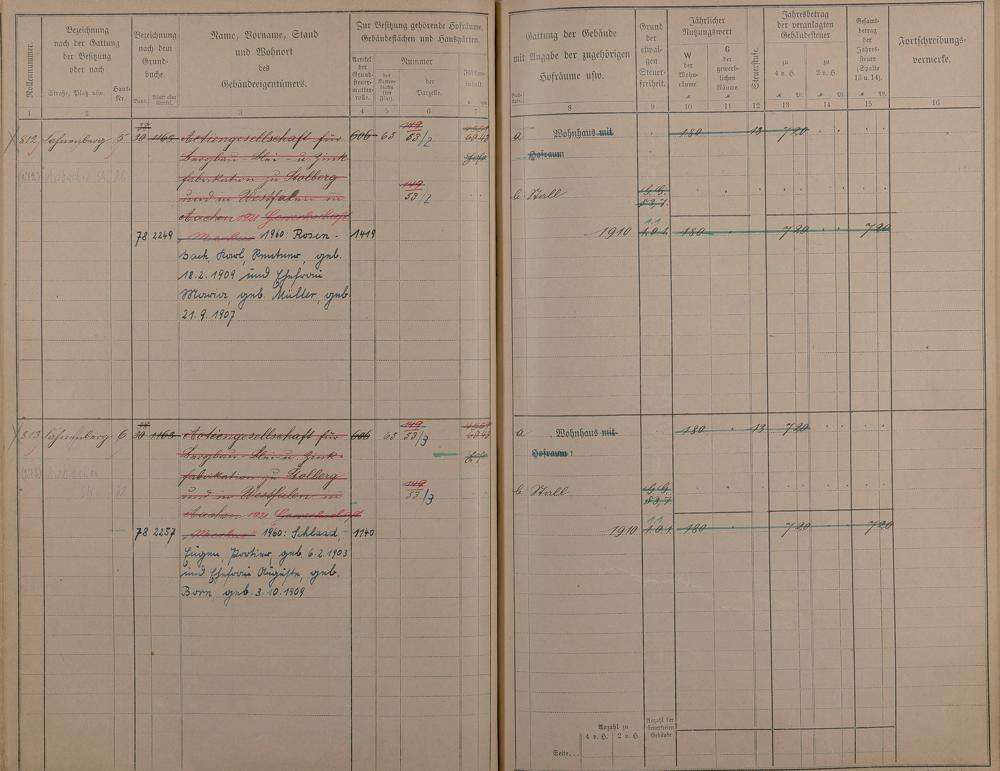 Rollennummer.
Bezeichnung
nach der Gattung
der Besitzung
oder nach
Straße, Platz usw.
Haus-
Nr.
Bezeichnung
nach dem
Grund-
buche.
Band.
Blatt oder
Artikel.
Name, Vorname, Stand
und Wohnort
des
Gebäudeeigentümers.
Zur Besitzung gehörende Hofräume,
Gebäudeflächen und Hausgärten.
Artikel
der
Grund-
steuer-
mutter-
rolle.
Nummer
des
der
Parzelle.
1 2 3 4 5 6
812 Lahnenberg 5
30 1163 Actiengesellschaft für 606 63 53/2
Bergbau- Blei- u. Zink-
fabrikation zu Stolberg
und in Westfalen in 53/2
Aachen 1921 Gewerkschaft
78 2249 1960: Rosen- 1419
back, Karl, Rentner, geb.
18.2.1909 und Ehefrau
Maria, geb. Müller, geb.
21.9.1907
813 Lahnenberg 6
30 1163 Actiengesellschaft für 606 63 53/3
Bergbau- Blei- u. Zink-
fabrikation zu Stolberg
und in Westfalen in 53/3
Aachen 1921 Gewerkschaft
78 2257 1960: 1140
Eugen geb. 6.2.1903
und Ehefrau Auguste, geb.
Born, geb. 3.10.1909
Gattung der Gebäude
mit Angabe der zugehörigen
Hofräume usw.
Grund
der
etwai-
gen
Steuer-
freiheit.
Jährlicher
Nutzungswert
W
der
Wohn-
räume
G
der
gewerb-
lichen
Räume
Steuerstufe.
Jahresbetrag
der veranlagten
Gebäudesteuer
zu
4 v. H.
zu
2 v. H.
Gesamt-
betrag
der
Jahres-
steuer
(Spalte
13 u. 14).
Fortschreibungs-
vermerke.
8 9 10 11 12 13 14 15 16
a Wohnhaus mit 180 13 7 20
Hofraum
b Stall
1910 180 7 20 7 20
a Wohnhaus mit 180 13 7 20
Hofraum
b Stall
1910 180 7 20 7 20
Anzahl zu
4 v. H. 2 v. H.
Anzahl der
steuerfreien
Gebäude
Seite...